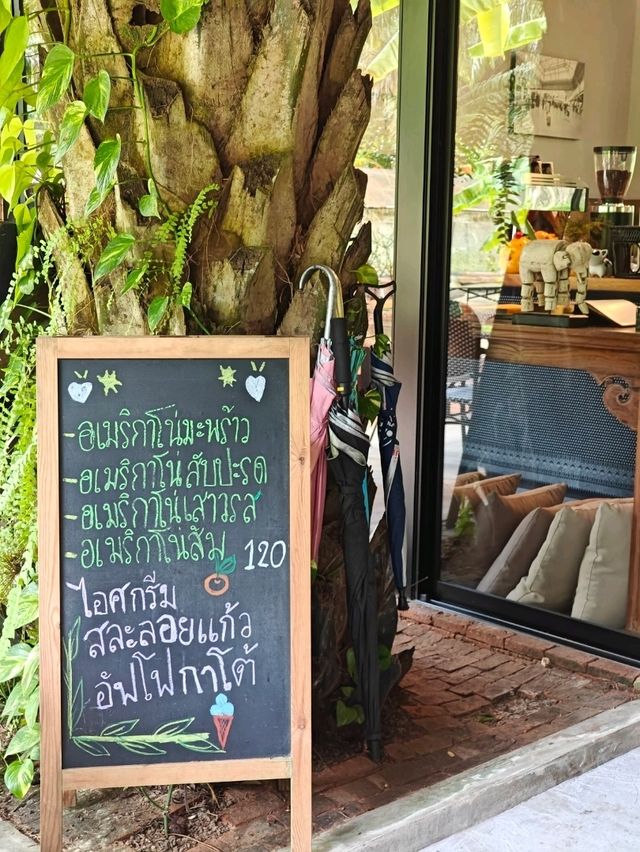 - อเมริกาโน่มะพร้าว
- อเมริกาโน่สับปะรด
- อเมริกาโน่เสาวรส
- อเมริกาโน่ส้ม 120
ไอศกรีม
สละลอยแก้ว
อัฟโฟกาโต้